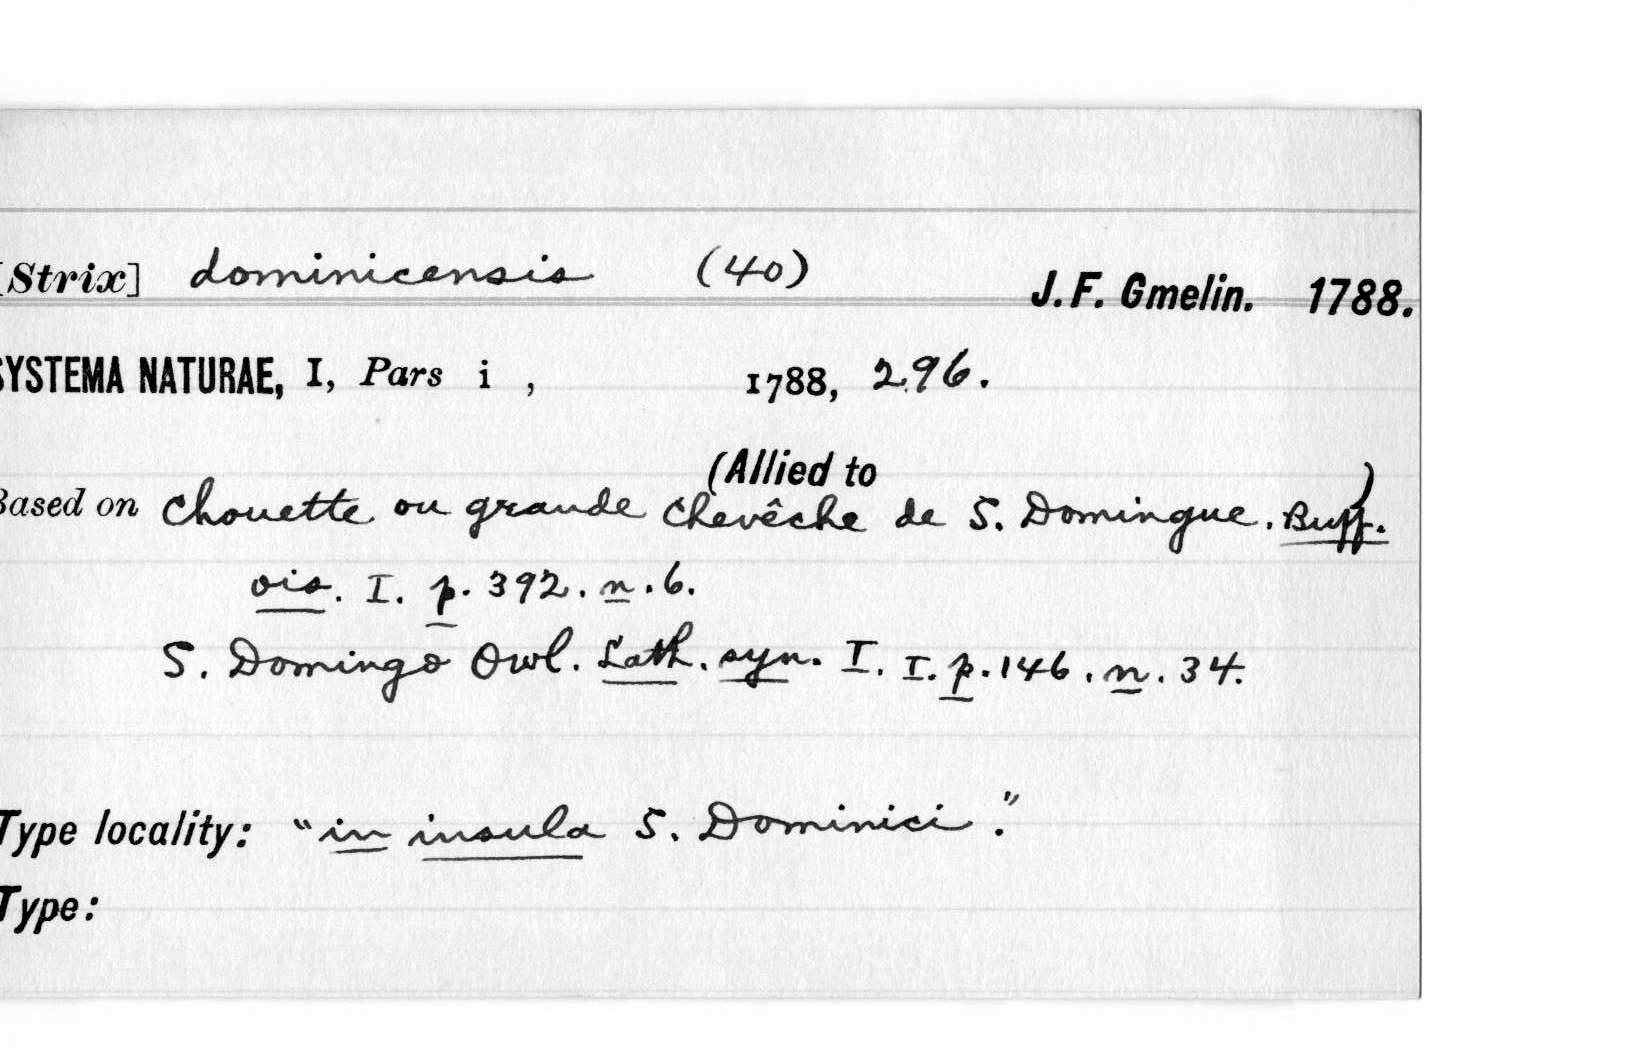 [Strix] dominicensis (40) J. F. Gmelin. 1788.
SYSTEMA NATURAE, I, Pars i , 1788, 296.
(Allied to )
Based on Chouette ou grande Chevêche de S. Domingue. Buff.
ois. I. p. 392. n. 6.
S. Domingo Owl. Lath. syn. I. I. p. 146. n. 34.
Type locality: "in insula S. Dominici."
Type: